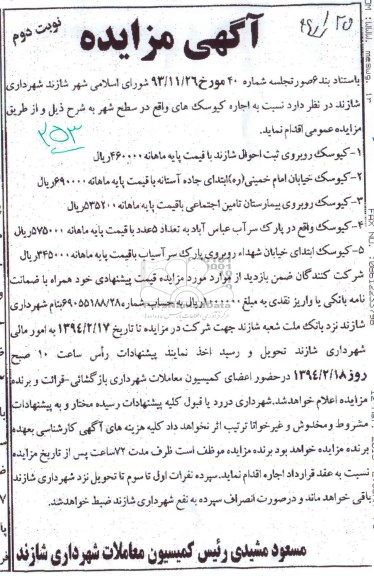 نوبت دوم
آگهی مزایده
باستناد بند ۶صورتجلسه شماره ۴۰ مورخ ۹۳/۱۱/۲۶ شورای اسلامی شهر شازند شهرداری
شازند در نظر دارد نسبت به اجاره کیوسک های واقع در سطح شهر به شرح ذیل و از طریق
مزایده عمومی اقدام نماید.
۲۵۳
۱-کیوسک روبروی ثبت احوال شازند با قیمت پایه ماهانه ۴۶۰۰۰۰ریال
۲-کیوسک خیابان امام خمینی(ره)ابتدای جاده آستانه با قیمت پایه ماهانه ۶۹۰۰۰۰ریال
۳-کیوسک روبروی بیمارستان تامین اجتماعی باقیمت پایه ماهانه ۵۳۵۲۰۰ریال
۴-کیوسک واقع در پارک سرآب عباس آباد به تعداد ۵عدد با قیمت پایه ماهانه ۵۷۵۰۰۰ریال
۵-کیوسک ابتدای خیابان شهداء روبروی پارک سرآسیاب باقیمت پایه ماهانه ۳۴۵۰۰۰ریال
شرکت کنندگان ضمن بازدید از موارد مورد مزایده قیمت پیشنهادی خود همراه با ضمانت
نامه بانکی یا واریز نقدی به مبلغ ۱۰۰۰۰۰۰ریال به حساب شماره ۶۹۰۵۵۱۸۸/۲۸بنام شهرداری
شازند نزد بانک ملت شعبه شازند جهت شرکت در مزایده تا تاریخ ۱۳۹۴/۲/۱۷ به امور مالی
شهرداری شازند تحویل و رسید اخذ نمایند پیشنهادات رأس ساعت ۱۰ صبح
روز ۱۳۹۴/۲/۱۸ درحضور اعضای کمیسیون معاملات شهرداری بازگشائی-قرائت و برنده
مزایده اعلام خواهدشد.شهرداری دررد یا قبول کلیه پیشنهادات رسیده مختار و به پیشنهادات
مشروط و مخدوش و غیرخوانا ترتیب اثر نخواهد داد کلیه هزینه های آگهی کارشناسی بعهده
برنده مزایده خواهد بود برنده مزایده موظف است ظرف مدت ۷۲ساعت پس از تاریخ مزایده
نسبت به عقد قرارداد اجاره اقدام نماید.سپرده نفرات اول تا سوم تا تحویل نزد شهرداری شازند
باقی خواهد ماند و درصورت انصراف سپرده به نفع شهرداری شازند ضبط خواهدشد.
مسعود مشیدی رئیس کمیسیون معاملات شهرداری شازند